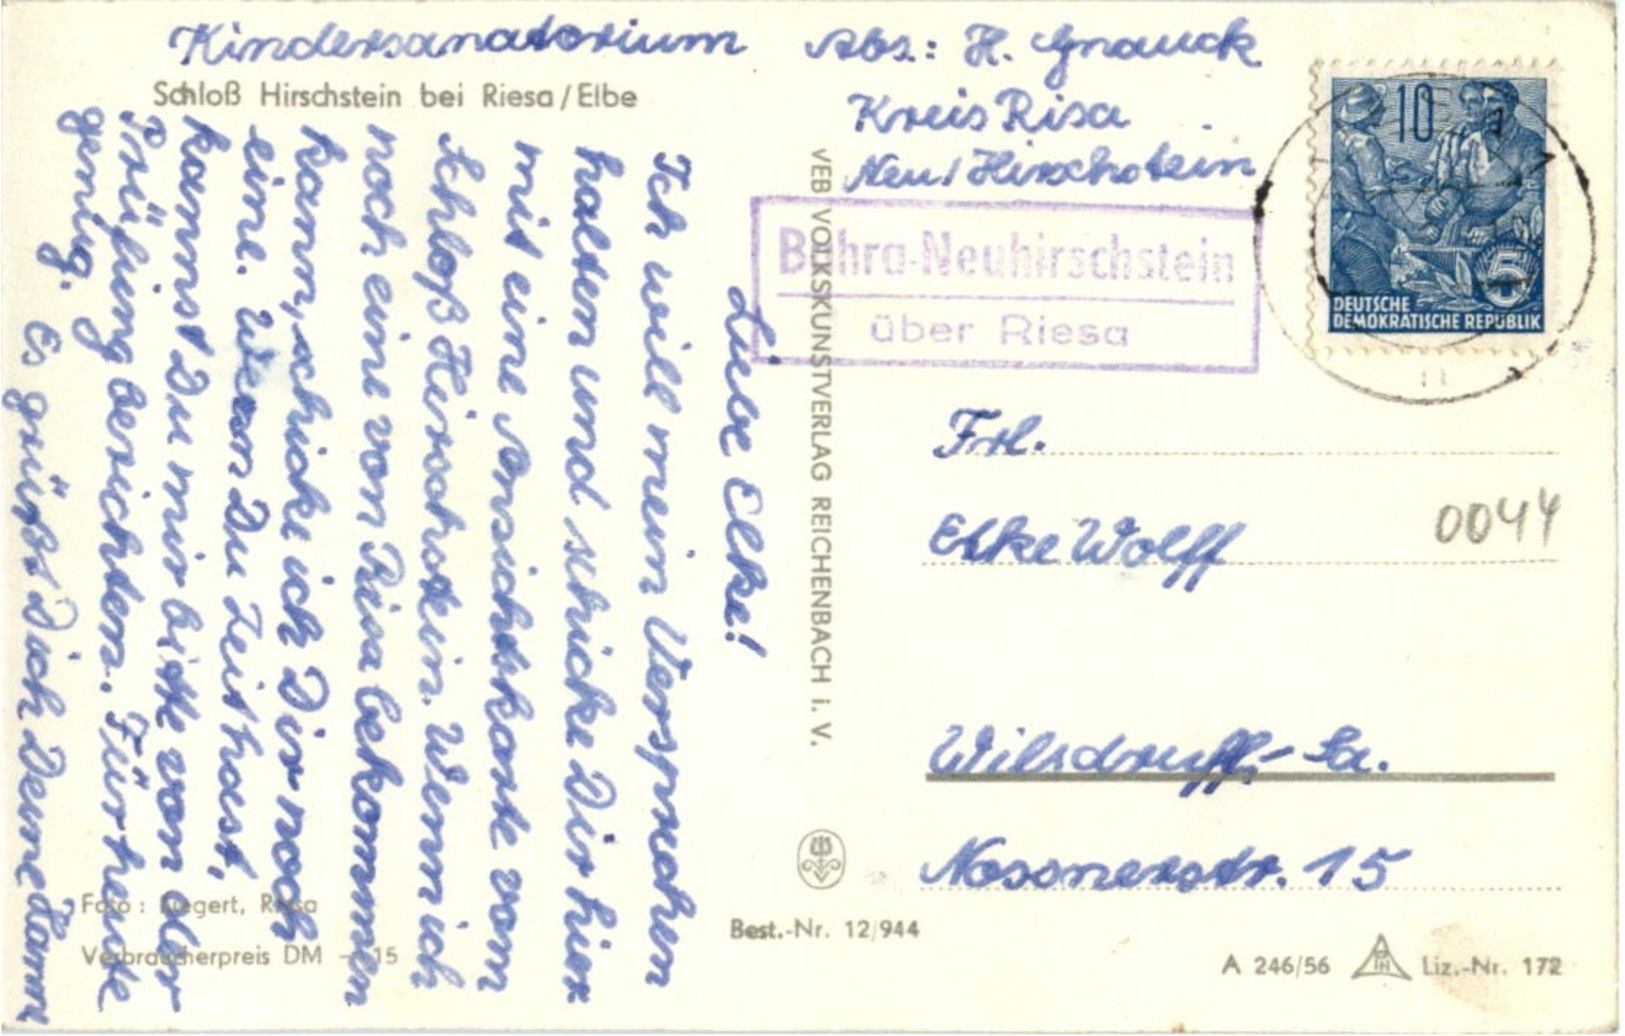 Kindersanatorium
Schloß Hirschstein bei Riesa/Elbe
Liebe Elke!
Ich will mein Versprechen
halten und schicke Dir hier
mit eine Ansichtskarte vom
Schloß Hirschstein. Wenn ich
noch eine von Risa bekommen
kann, schicke ich Dir noch
eine. Wenn Du Zeit hast,
kannst Du mir bitte von der
Prüfung berichten. Für heute
genug.
Es grüßt Dich Deine
Foto: Riesa
Verbraucherpreis DM – 15
VEB VOLKSKUNSTVERLAG REICHENBACH i. V.
Best.-Nr. 12/944
Abs.: H. Gnauck
Kreis Risa
Neu/Hirschstein
Bahra-Neuhirschstein
über Riesa
10
5
DEUTSCHE
DEMOKRATISCHE REPUBLIK
Frl.
Elke Wolff
0044
Wilsdruff,- Sa.
Nossnerstr. 15
A 246/56
Liz.-Nr. 172